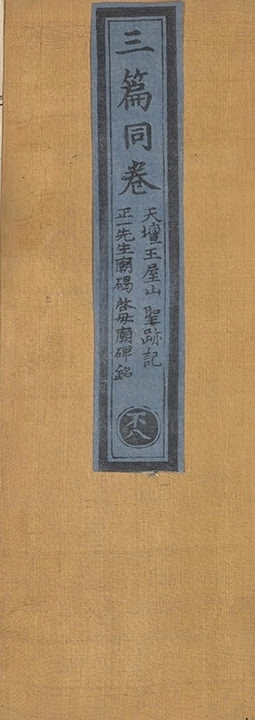 三篇同卷
天壇王屋山聖跡記
正一先生廟碣 啓母廟碑銘
不八